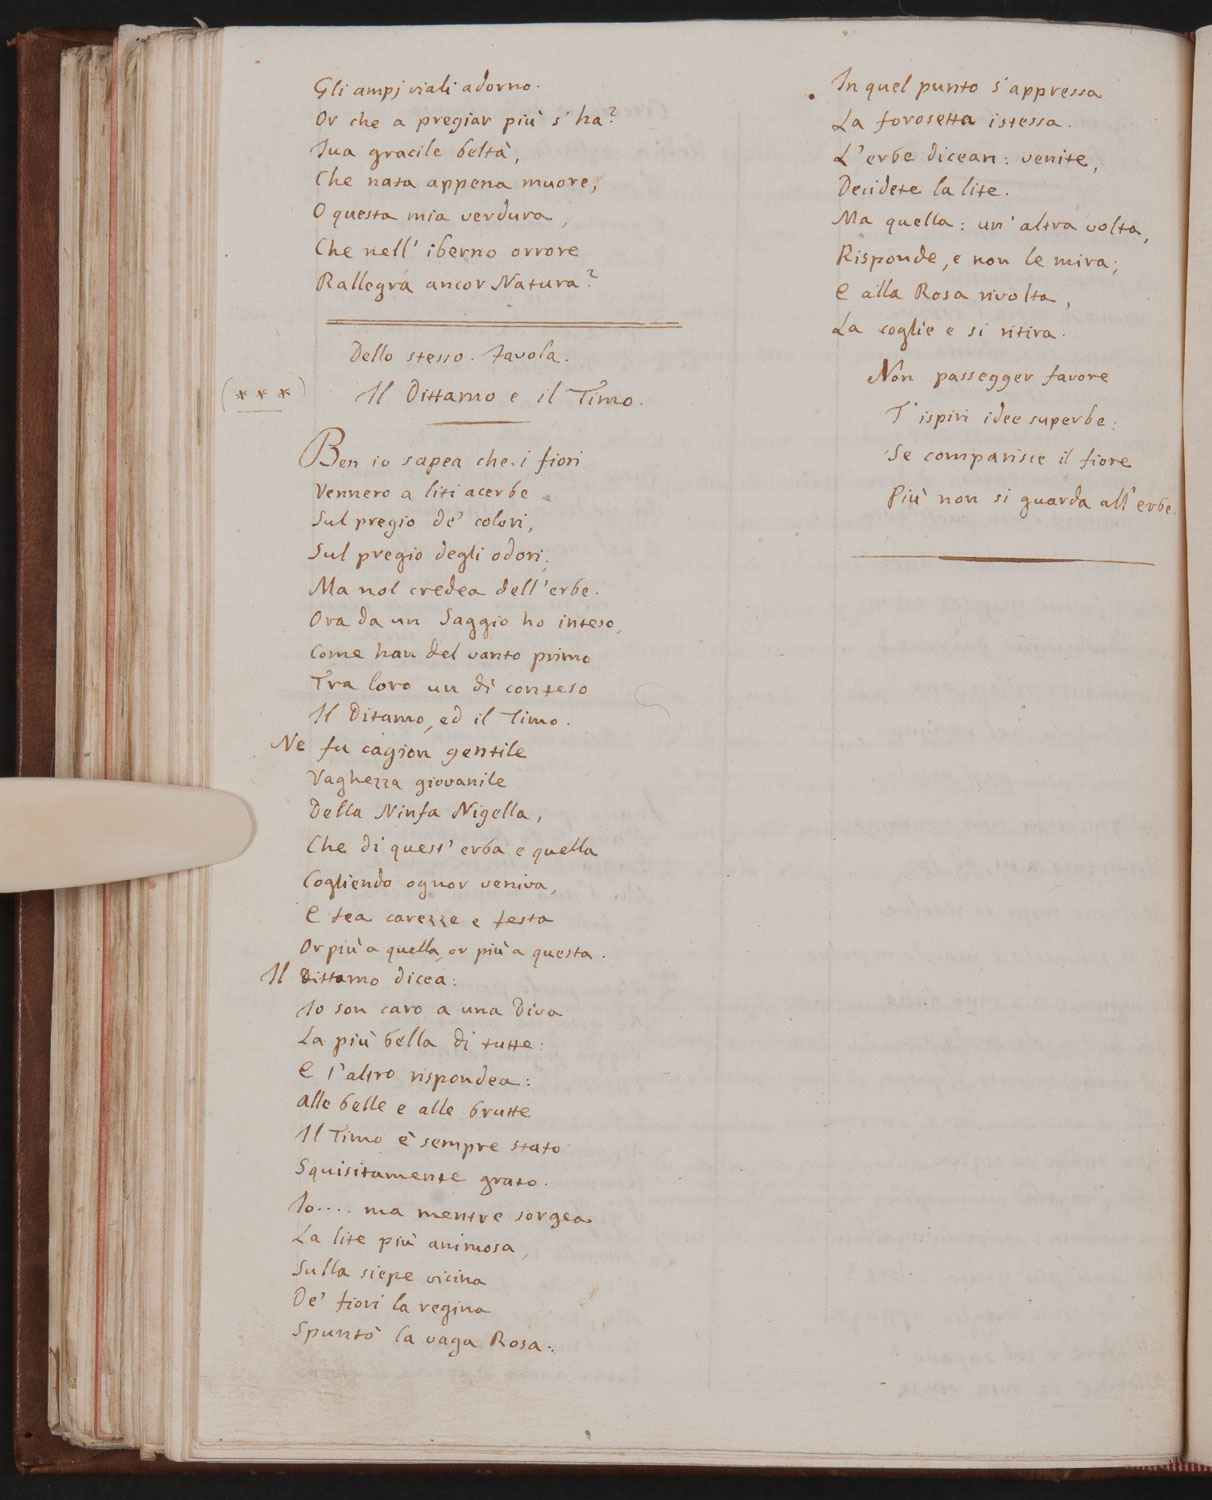 Gli ampj viali adorno.
Or che a pregiar più s'ha?
Tua gracile beltà,
Che nata appena muore,
O questa mia verdura,
Che nell'iberno orrore
Rallegra ancor Natura?
Dello stesso. Favola.
(***)
Il Dittamo e il Timo.
Ben io sapea che i fiori
Vennero a liti acerbe
Sul pregio de' colori,
Sul pregio degli odori;
Ma nol credea dell'erbe.
Ora da un Saggio ho inteso,
Come han del vanto primo
Tra loro un dì conteso
Il Ditamo, ed il Timo.
Ne fu cagion gentile
Vaghezza giovanile
Della Ninfa Nigella,
Che di quest'erba e quella
Cogliendo ognor veniva,
E fea carezze e festa
Or più a quella, or più a questa.
Il Dittamo dicea:
Io son caro a una Diva
La più bella di tutte:
E l'altro rispondea:
alle belle e alle brutte
Il Timo è sempre stato
Squisitamente grato.
Io.... ma mentre sorgea
La lite più animosa,
Sulla siepe vicina
De' fiori la regina
Spuntò la vaga Rosa.
In quel punto s'appressa
La forosetta istessa.
L'erbe dicean: venite,
Decidete la lite.
Ma quella: un'altra volta,
Risponde, e non le mira;
E alla Rosa rivolta,
La coglie e si ritira.
Non passegger favore
T'ispiri idee superbe:
Se comparisce il fiore
Più non si guarda all'erbe.